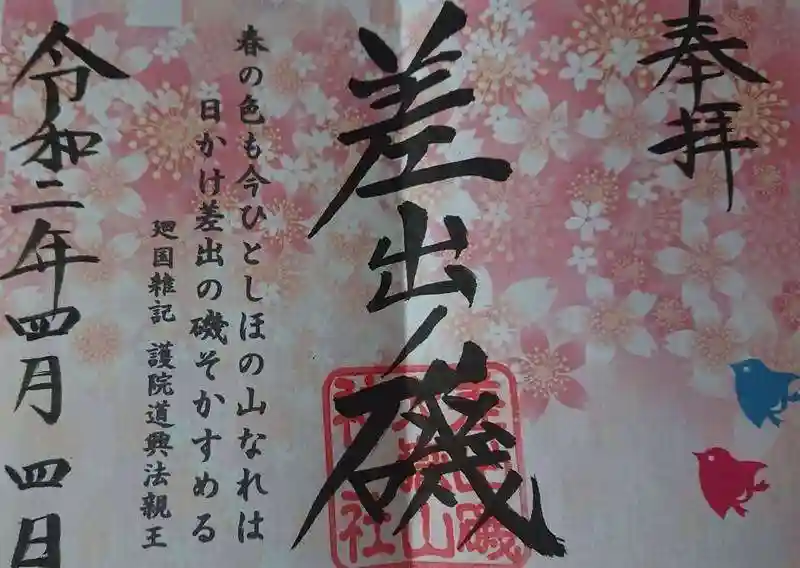 奉拝
差出ノ磯
差出磯
大嶽山
神社
春の色も今ひとしほの山なれは
日かけ差出の磯そかすめる
廻国雑記 護院道興法親王
令和二年四月四日